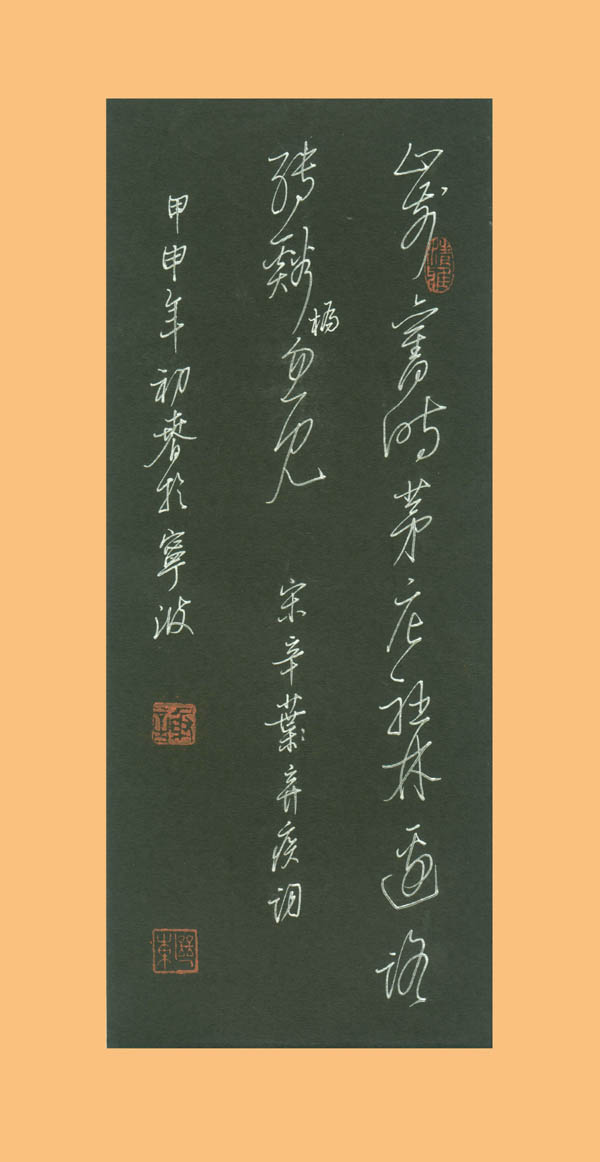 山前舊時茅店社林邊路
轉谿橋忽見 宋辛葉弃疾詞
甲申年初春於寧波